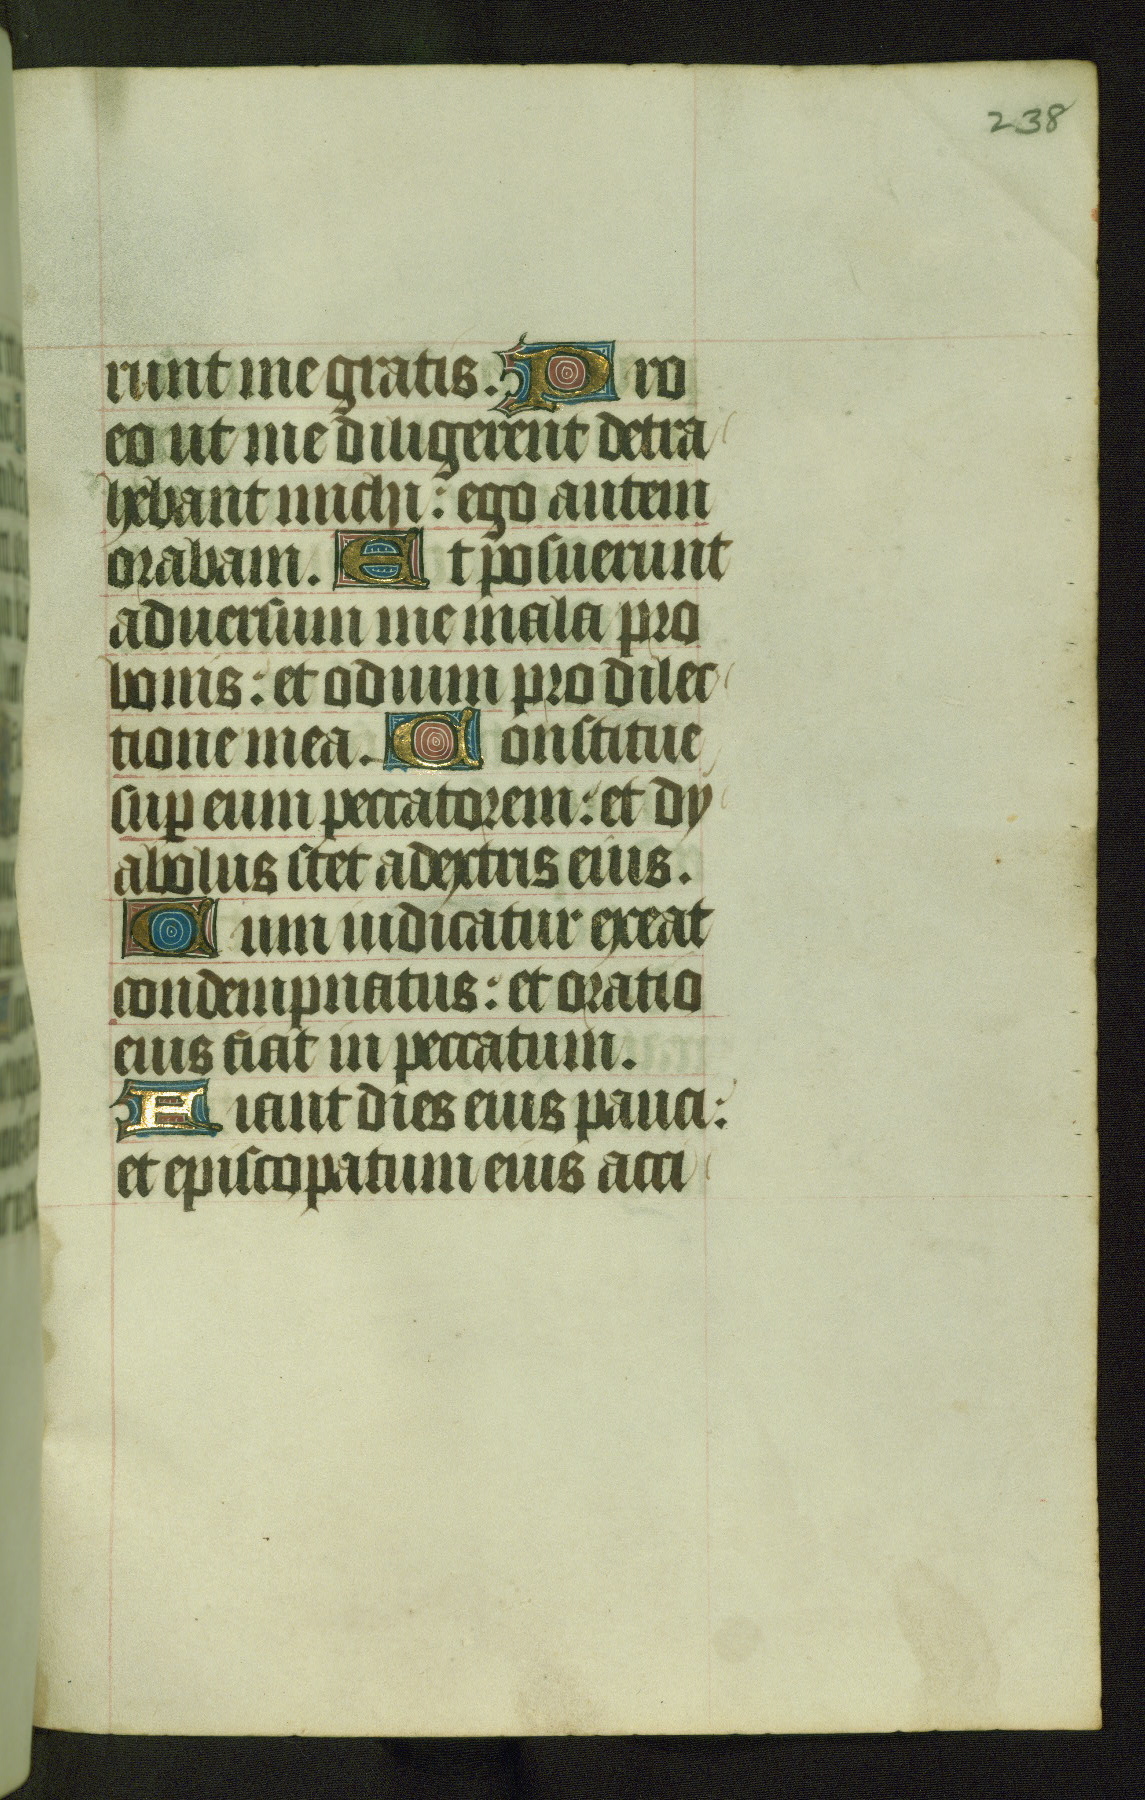 238
runt me gratis. Pro
eo ut me diligerent detra
hebant michi: ego autem
orabam. Et posuerunt
adversum me mala pro
bonis: et odium pro dilec
tione mea. Constitue
sup eum peccatorem: et dy
abolus stet adextris eius.
Cum iudicatur exeat
condempnatus: et oratio
eius fiat in peccatum.
Fiant dies eius pauci:
et episcopatum eius acci